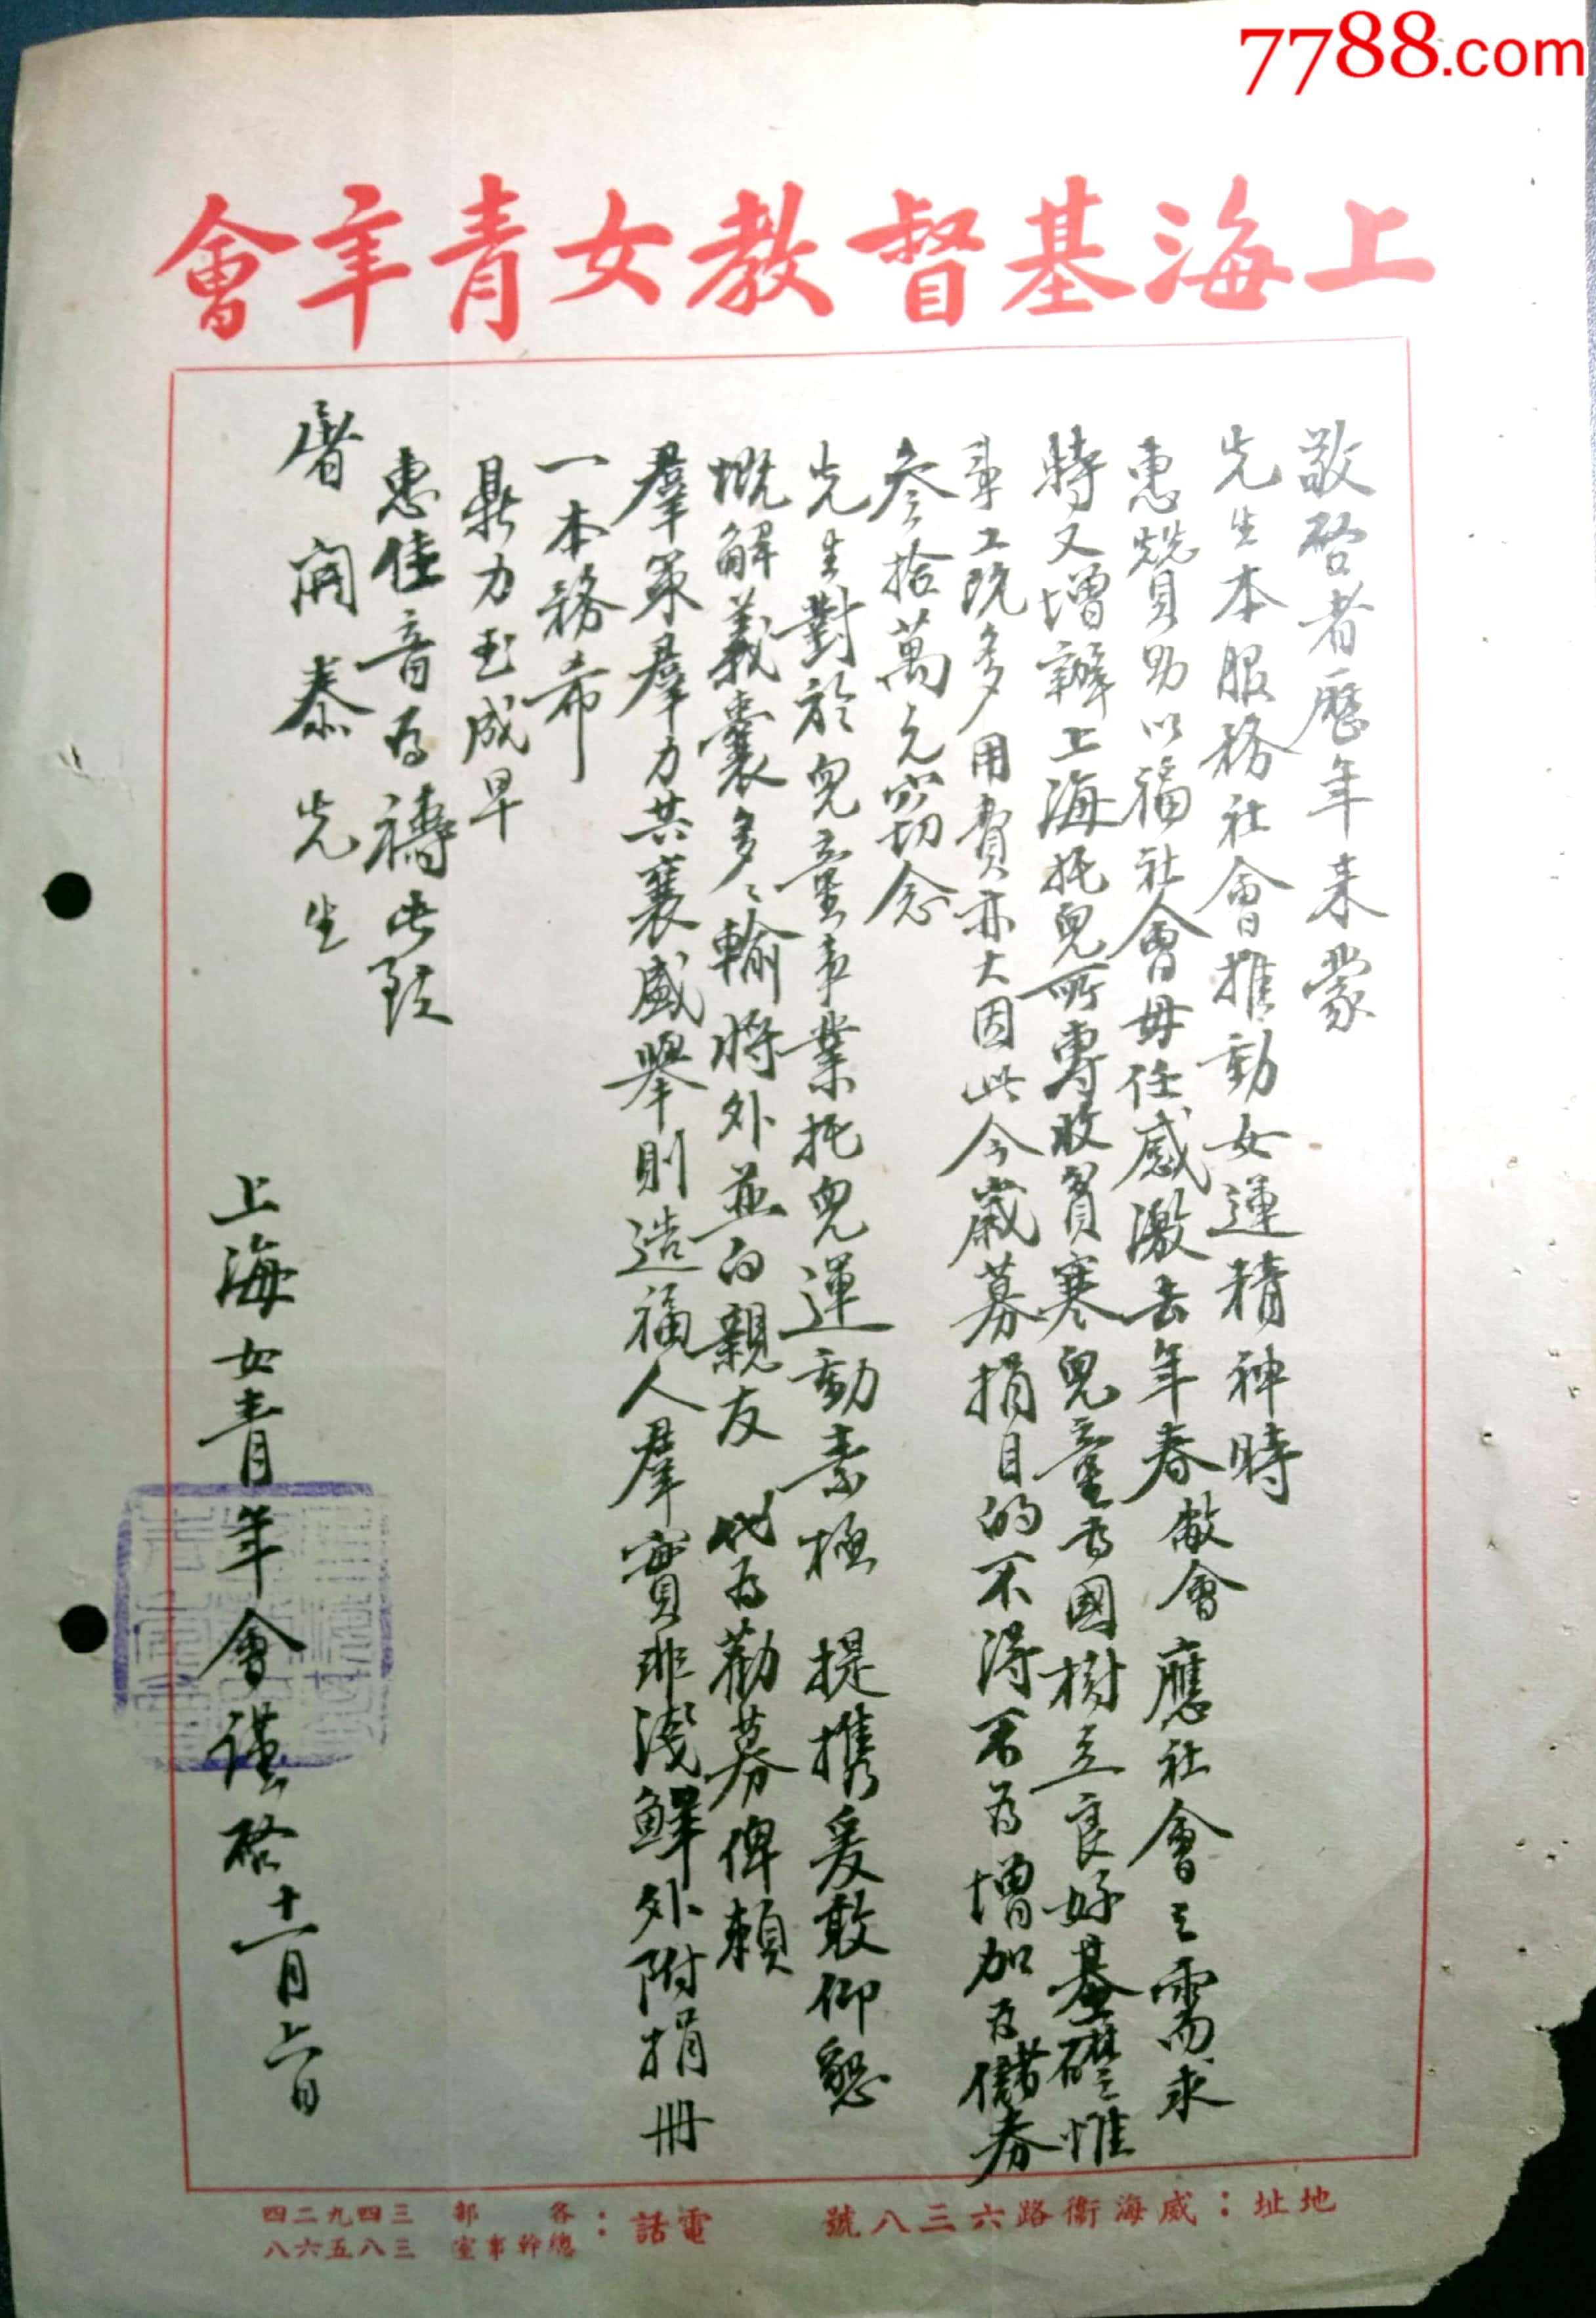 7788.com
上海基督教女青年會
敬啓者歷年來蒙
先生本服務社會推動女運精神時
惠贊助以福社會毋任感激去年春敝會應社會之需求
時又增辦上海托兒所專收貧寒兒童為國樹立良好基礎惟
事工既多用費亦大因此今歲募捐目的不得不為增加為儲券
叁拾萬元竊念
先生對於兒童事業托兒運動素極提携爰敢仰懇
慨解義囊多多輸將外並向親友代為勸募俾賴
羣策羣力共襄盛舉則造福人羣實非淺鮮外附捐冊
一本務希
鼎力玉成早
惠佳音為禱此致
屠開泰先生
上海女青年會謹啓十一月六日
地址：威海衛路六三八號
電話：各部 三四九二四
總幹事室 三八五六八